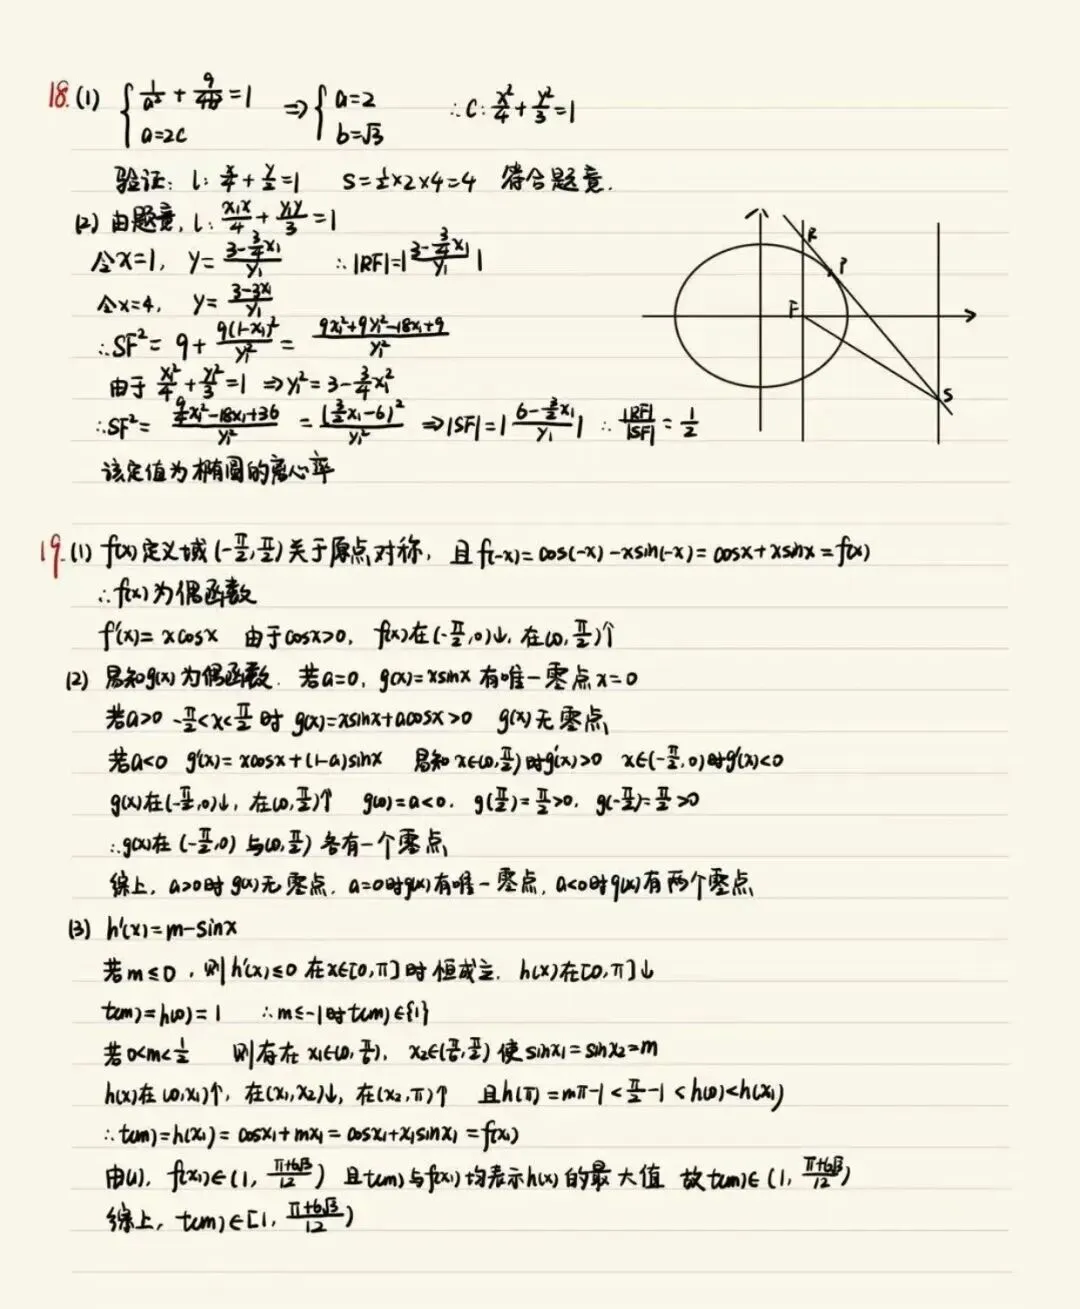 18.(1) { 1/a² + 9/4b² = 1 ⇒ { a=2 ∴ C: x²/4 + y²/3 = 1
a=2c b=√3
验证: l: x/4 + y/2 = 1 S=½×2×4=4 符合题意.
(2) 由题意, l: x₁x/4 + y₁y/3 = 1
令x=1, y= (3-¾x₁)/y₁ ∴|RF|=|(3-¾x₁)/y₁|
令x=4, y= (3-3x₁)/y₁
∴SF²= 9+ 9(1-x₁)²/y₁² = (9x₁²+9y₁²-18x₁+9)/y₁²
由于 x₁²/4 + y₁²/3 =1 ⇒y₁²=3-¾x₁²
∴SF²= (9/4x₁²-18x₁+36)/y₁² = (3/2x₁-6)²/y₁² ⇒|SF|=|(6-3/2x₁)/y₁| ∴ |RF|/|SF| = 1/2
该定值为椭圆的离心率
R
P
F
S
19.(1) f(x)定义域(-π/2,π/2)关于原点对称, 且f(-x)=cos(-x)-xsin(-x)=cosx+xsinx=f(x)
∴f(x)为偶函数
f'(x)=xcosx 由于cosx>0, f(x)在(-π/2,0)↓, 在(0,π/2)↑
(2) 易知g(x)为偶函数. 若a=0, g(x)=xsinx有唯一零点x=0
若a>0 -π/2<x<π/2时 g(x)=xsinx+acosx>0 g(x)无零点
若a<0 g'(x)=xcosx+(1-a)sinx 易知x∈(0,π/2)时g'(x)>0 x∈(-π/2,0)时g'(x)<0
g(x)在(-π/2,0)↓, 在(0,π/2)↑ g(0)=a<0, g(π/2)=π/2>0, g(-π/2)=π/2>0
∴g(x)在(-π/2,0)与(0,π/2)各有一个零点
综上, a>0时g(x)无零点, a=0时g(x)有唯一零点, a<0时g(x)有两个零点
(3) h'(x)=m-sinx
若m≤0, 则h'(x)≤0在x∈[0,π]时恒成立. h(x)在[0,π]↓
t(m)=h(0)=1 ∴m≤-1时t(m)∈{1}
若0<m<½ 则存在x₁∈(0,π/6), x₂∈(π/6,π/2)使sinx₁=sinx₂=m
h(x)在(0,x₁)↑, 在(x₁,x₂)↓, 在(x₂,π)↑ 且h(π)=mπ-1<π/2-1<h(0)<h(x₁)
∴t(m)=h(x₁)=cosx₁+mx₁=cosx₁+x₁sinx₁=f(x₁)
由(1), f(x₁)∈(1, (π+6√3)/12) 且t(m)与f(x₁)均表示h(x)的最大值 故t(m)∈(1, (π+6√3)/12)
综上, t(m)∈[1, (π+6√3)/12)